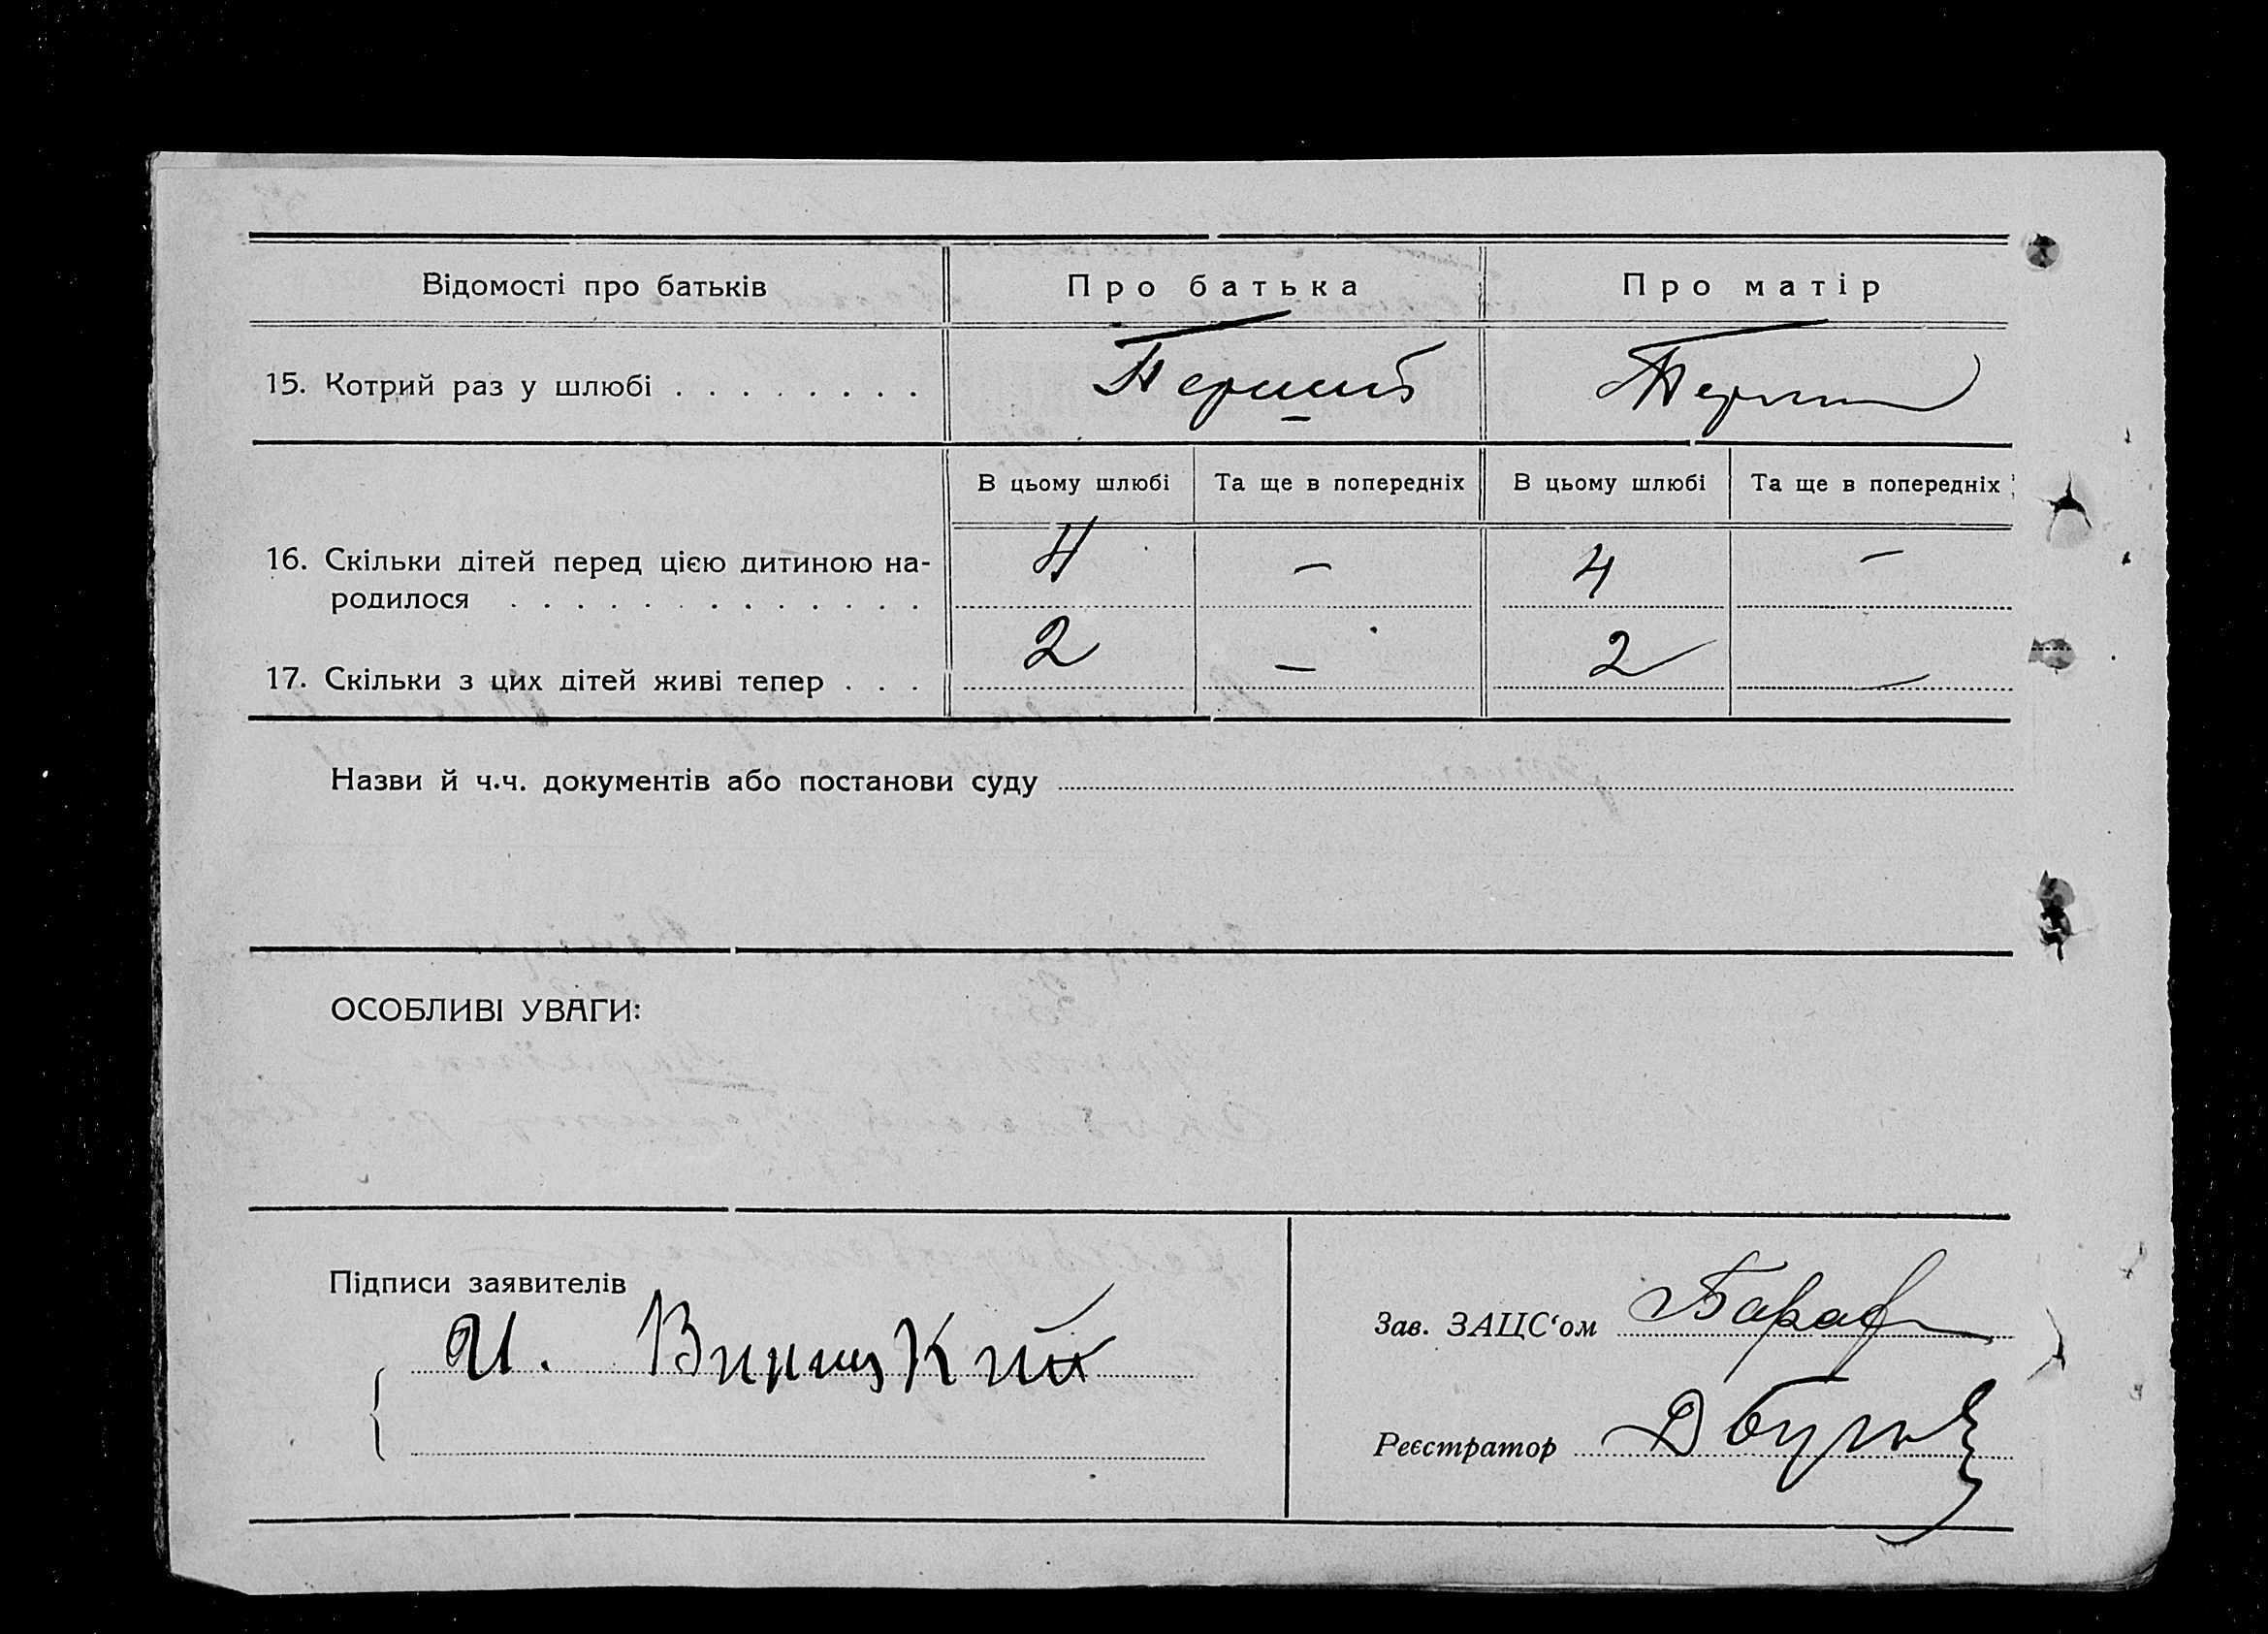 Відомості про батьків
Про батька
Про матір
15. Котрий раз у шлюбі . . . . . . . .
Перший
Перш
В цьому шлюбі
Та ще в попередніх
В цьому шлюбі
Та ще в попередніх
16. Скільки дітей перед цією дитиною на-
родилося . . . . . . . . . . . . .
4
—
4
—
17. Скільки з цих дітей живі тепер . . .
2
—
2
—
Назви й ч.ч. документів або постанови суду
ОСОБЛИВІ УВАГИ:
Підписи заявителів
И.
Зав. ЗАЦС‘ом
Реєстратор